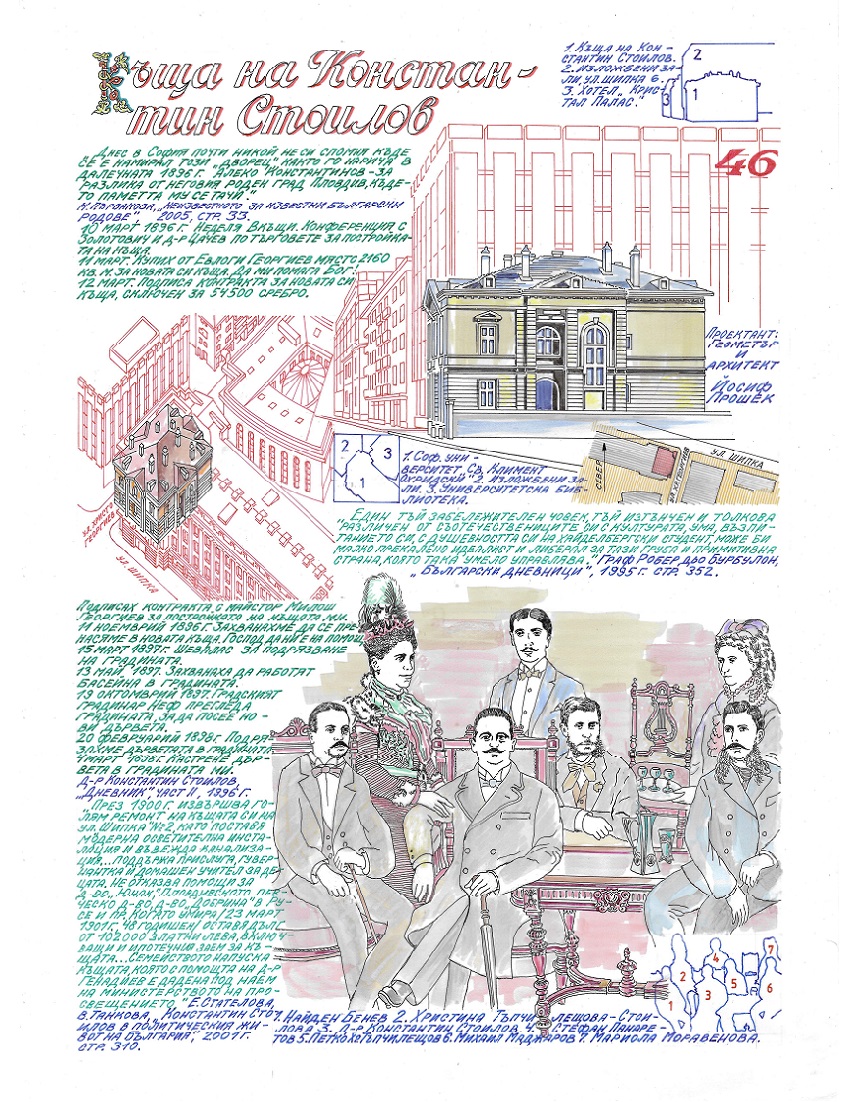 Къща на Констан-
тин Стоилов
1. Къща на Кон-
стантин Стоилов.
2. Изложбени за-
ли, ул. Шипка 6.
3. Хотел „Крис-
тал Палас".
2
1
3
46
Днес в София почти никой не си спомня къде
се е намирал този „дворец", както го нарича в
далечната 1896 г. Алеко Константинов – за
разлика от неговия роден град Пловдив, къде-
то паметта му се тачи."
„Неизвестното за известни българи
родове", 2005, стр. 33.
10 март 1896 г. Неделя вкъщи. Конференция с
Золотович и д-р Цачев по търговете за постройка-
та на къща.
11 март. Купих от Евлоги Георгиев място 2160
кв. м. за новата си къща. Да ми помага Бог!
12 март. Подписа контракта за новата си
къща, сключен за 54500 сребро.
Проектант:
Геометър
и
архитект
Йосиф
Прошек
2
3
1
1. Соф. уни-
верситет „Св. Климент
Охридски" 2. Изложбени за-
ли. 3. Университетска биб-
лиотека.
север
ул. Шипка
ул. Христо
Георгиев
ул. Шипка
„Един тъй забележителен човек, тъй изтънчен и толкова
различен от съотечествениците си с културата, ума, възпи-
танието си, с душевността си на хайделбергски студент, може би
малко прекалено идеалист и либерал за тази груба и примитивна
страна, която така умело управлява." Граф Робер дьо Бурбулон,
„Български дневници", 1995 г. стр. 352.
Подписах контракта с майстор Милош
Георгиев за постройката на къщата ми.
11 ноември 1896 г. Захванахме да се пре-
насяме в новата къща. Господ да ни е на помощ.
15 март 1897 г. подрязване
на градината.
13 май, 1897. Захванаха да работят
басейна в градината.
19 октомврий 1897. Градският
градинар Неф прегледа
градината, за да посее но-
ви дървета.
20 февруарий 1898 г. Подря-
захме дърветата в градината
1 март 1898 г. Кастрене дър-
вета в градината ми.
Д-р Константин Стоилов,
„Дневник" част II, 1996 г.
„През 1900 г. извършва го-
лям ремонт на къщата си на
ул. „Шипка" № 2, като поставя
модерна осветителна инста-
лация и въвежда канализа-
ция... Поддържа прислуга, гувер-
нантка и домашен учител за де-
цата. Не отказва помощи за
д-во „Юнак", Пловдивското пев-
ческо д-во, д-во „Добрина" в Ру-
се и пр. Когато умира /23 март
1901 г. 48 годишен/ оставя дълг
от 102000 златни лева, включ-
ващи и ипотечния заем за къ-
щата... Семейството напуска
къщата, която с помощта на д-р
Генадиев е дадена под наем
на Министерството на про-
свещението." Е. Стателова,
В. Танкова, „Константин Сто-
илов в политическия жи-
вот на България", 2001 г.
стр. 310.
1. Найден Бенев 2. Христина Тъпчилещова-Стои-
лова 3. Д-р Константин Стоилов. 4. Стефан Панаре-
тов 5. Петко х. Тъпчилещов 6. Михаил Маджаров 7. Мариола Моравенова.
1
2
3
4
5
6
7